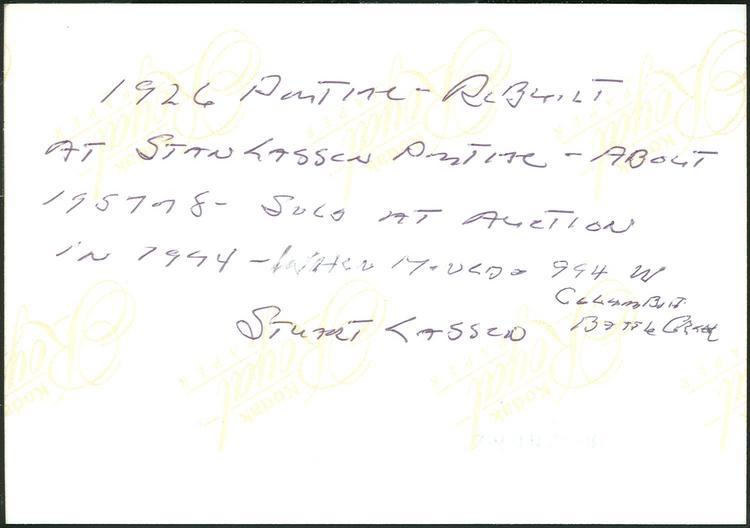 1926 PONTIAC - REBUILT
AT STAN LASSEN PONTIAC - ABOUT
1957 OR 8 - SOLD AT AUCTION
IN 1994 - WHEN MOVED 994 W
COLUMBIA
BATTLE CREEK
STUART LASSEN
Kodak
Royal
PAPER